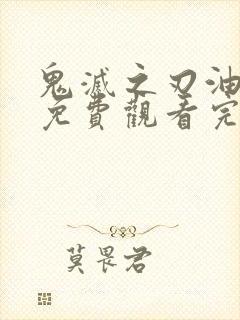 鬼滅之刃油
免費觀看完
莫畏君